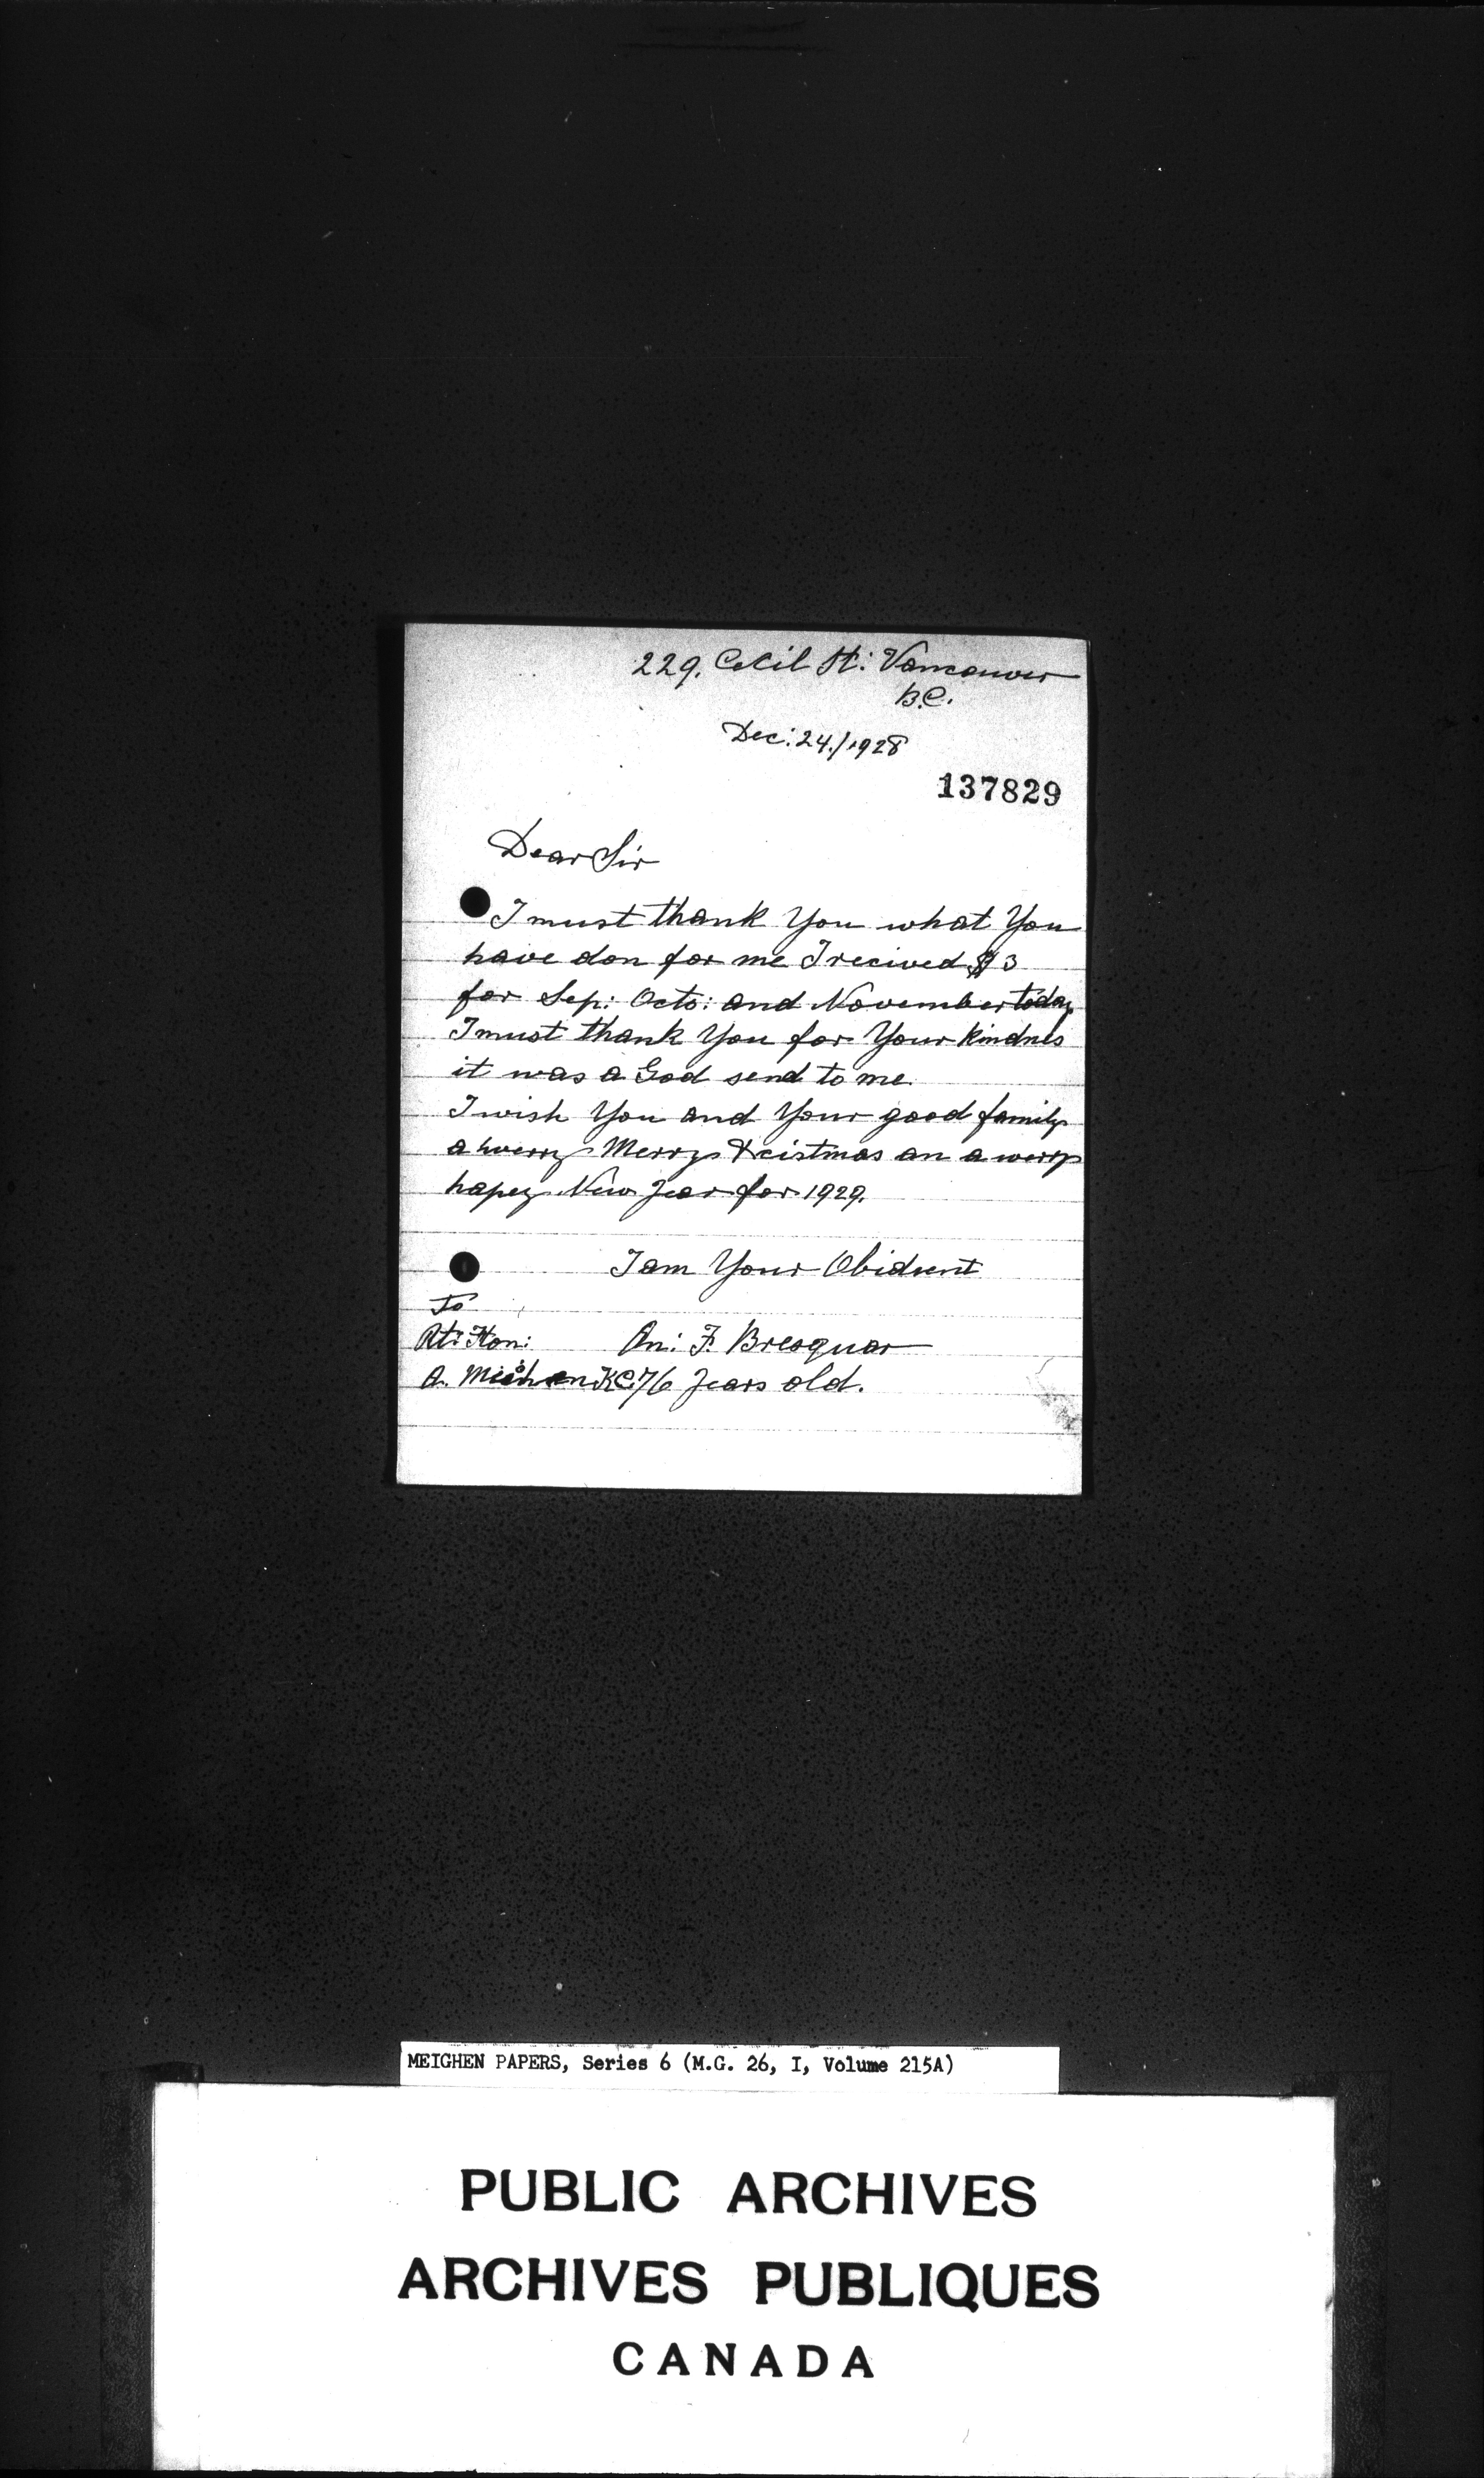 229. Cecil St: Vancouver
B.C.
Dec: 24./1928
137829
Dear Sir
I must thank You what You
have don for me I recived $ 3
for Sep: Octo: and November today
I must thank You for Your kindnes
it was a God send to me.
I wish You and Your good family
a werry Merry Xcistmas an a werry
hapey New Jear for 1929.
I am Your Obidient
To
Rt: Hon: An: F. Bresguar
A. Meichen KC 76 Jears old.
MEIGHEN PAPERS, Series 6 (M.G. 26, I, Volume 215A)
PUBLIC ARCHIVES
ARCHIVES PUBLIQUES
CANADA